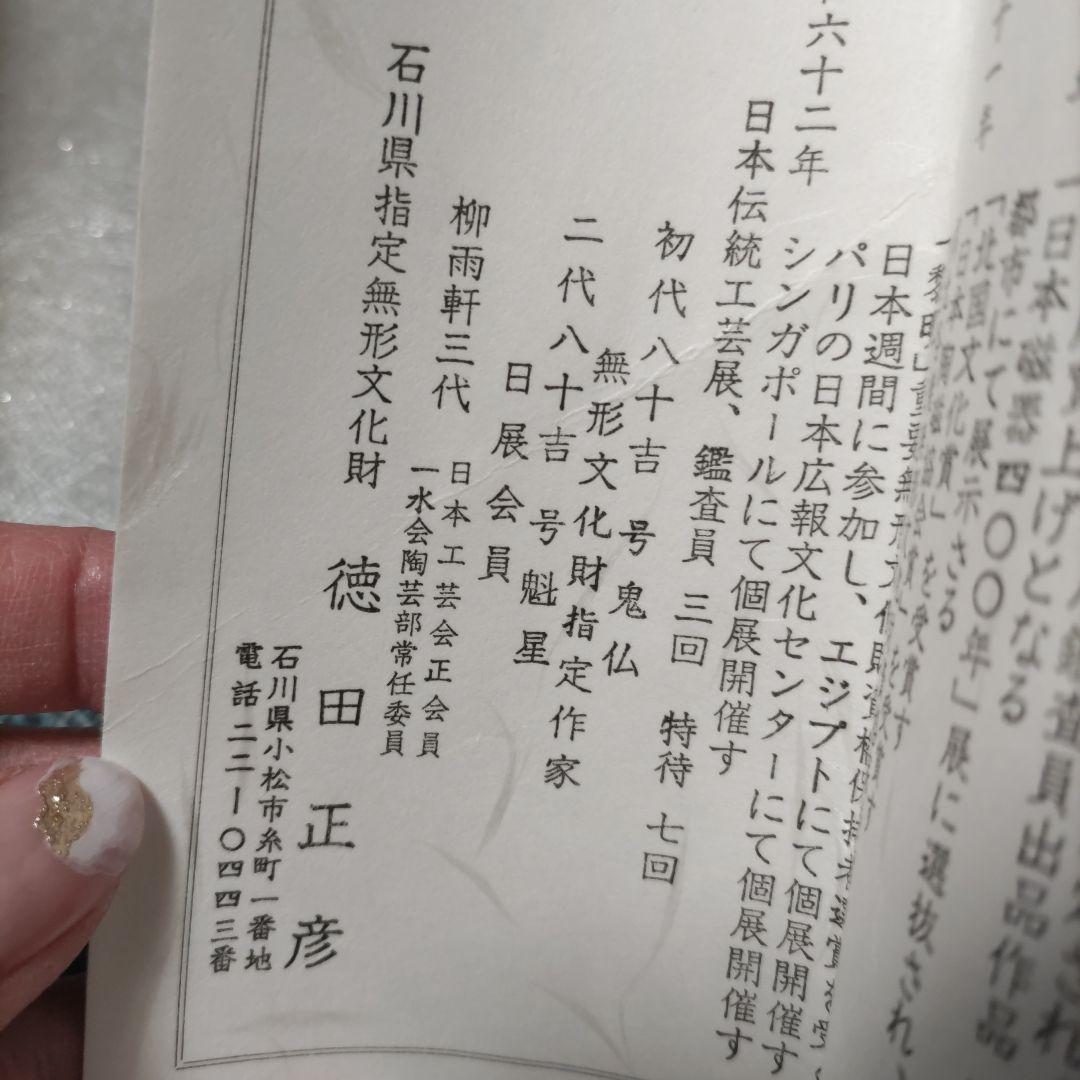 一日本
上げとなる
鑑査員出品作品
都市にて展示さる
日本磁器四〇〇年」展に選抜され、
「北国文化賞」を受賞す
六十二年
日本週間に参加し、エジプトにて個展開催す
パリの日本広報文化センターにて個展開催す
シンガポールにて個展開催す
日本伝統工芸展、鑑査員 三回 特待 七回
初代八十吉 号鬼仏
無形文化財指定作家
二代八十吉 号魁星
日展会員
柳雨軒三代
日本工芸会正会員
一水会陶芸部常任委員
石川県指定無形文化財
徳田正彦
石川県小松市糸町一番地
電話二二ー〇四四三番